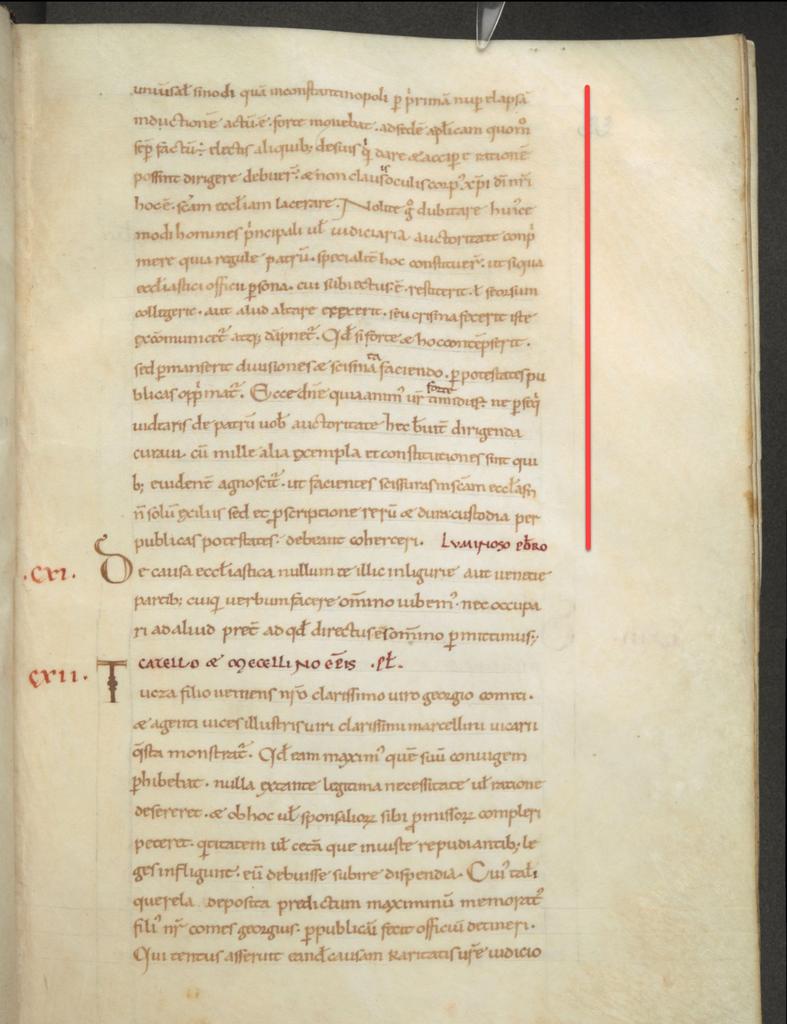 uniūsal sinodi quā inconstantinopoli p primā nup elapsā
inductionē actū.ē. forte mouebat. adsedē aplicam quom̄
sēp factū.ē. electis aliquib; desuis q dare & accipe rationē
possint dirigere debuer̄. & non clausis oculis corp' xp̄i dn̄i nr̄i
hoc.ē. scām eccliam lacerare. Nolite g dubitare huice
modi homines principali ul iudiciaria auctoritate conp
mere quia regule patrū. specialit hoc constituer̄. ut siqua
eccliastici officii psona. cui subiectus.ē. restiterit. l seorsum
colligerit. aut aliud altare erexerit. seu crisma fecerit iste
excōmunicet atq; dāpnet. Qd si forte & hoc contēpserit.
sed pmanserit diuisiones & scismata faciendo. p potestates pu
blicas opprimat. Ecce dn̄e quia anim' ur̄ forte timidus.ē. ne psequi
uidearis de patrū uob auctoritate hec breuit dirigenda
curaui. cū mille alia exempla et constitutiones sint qui
b; euident agnoscit. ut facientes scissuras in scām ecclām
n̄ solū exiliis sed et pscriptione rerū & dura custodia per
publicas potestates. debeant coherceri. Luminoso pbro
.cxi. De causa eccliastica nullum te illic in ligurie aut uenetie
partib; cuiq uerbum facere omino iubem'. nec occupa
ri ad aliud pret ad qd directus es omino pmittimus;
cxii. catello & mecellino ep̄is .pl.
Tuoza filio ueniens nr̄o clarissimo uiro georgio comiti.
& agenti uices illustris uiri clarissimi marcellini uicarii
qsta monstrat. Qd eam maxim' quē suū coniugem
phibebat. nulla extante legitima necessitate ul ratione
desereret. & ob hoc ul sponsalioꝝ sibi pmissoꝝ compleri
peteret. qtitatem ul cetā que iniuste repudiantib; le
ges infligunt. eū debuisse subire dispendia. Cui' tali
querela deposita predictum maximinū memorat'
fili' nr̄ comes georgius. p publicā fecit officiū detineri.
Qui tentus asserit eandē causam karitatis ur̄e iudicio